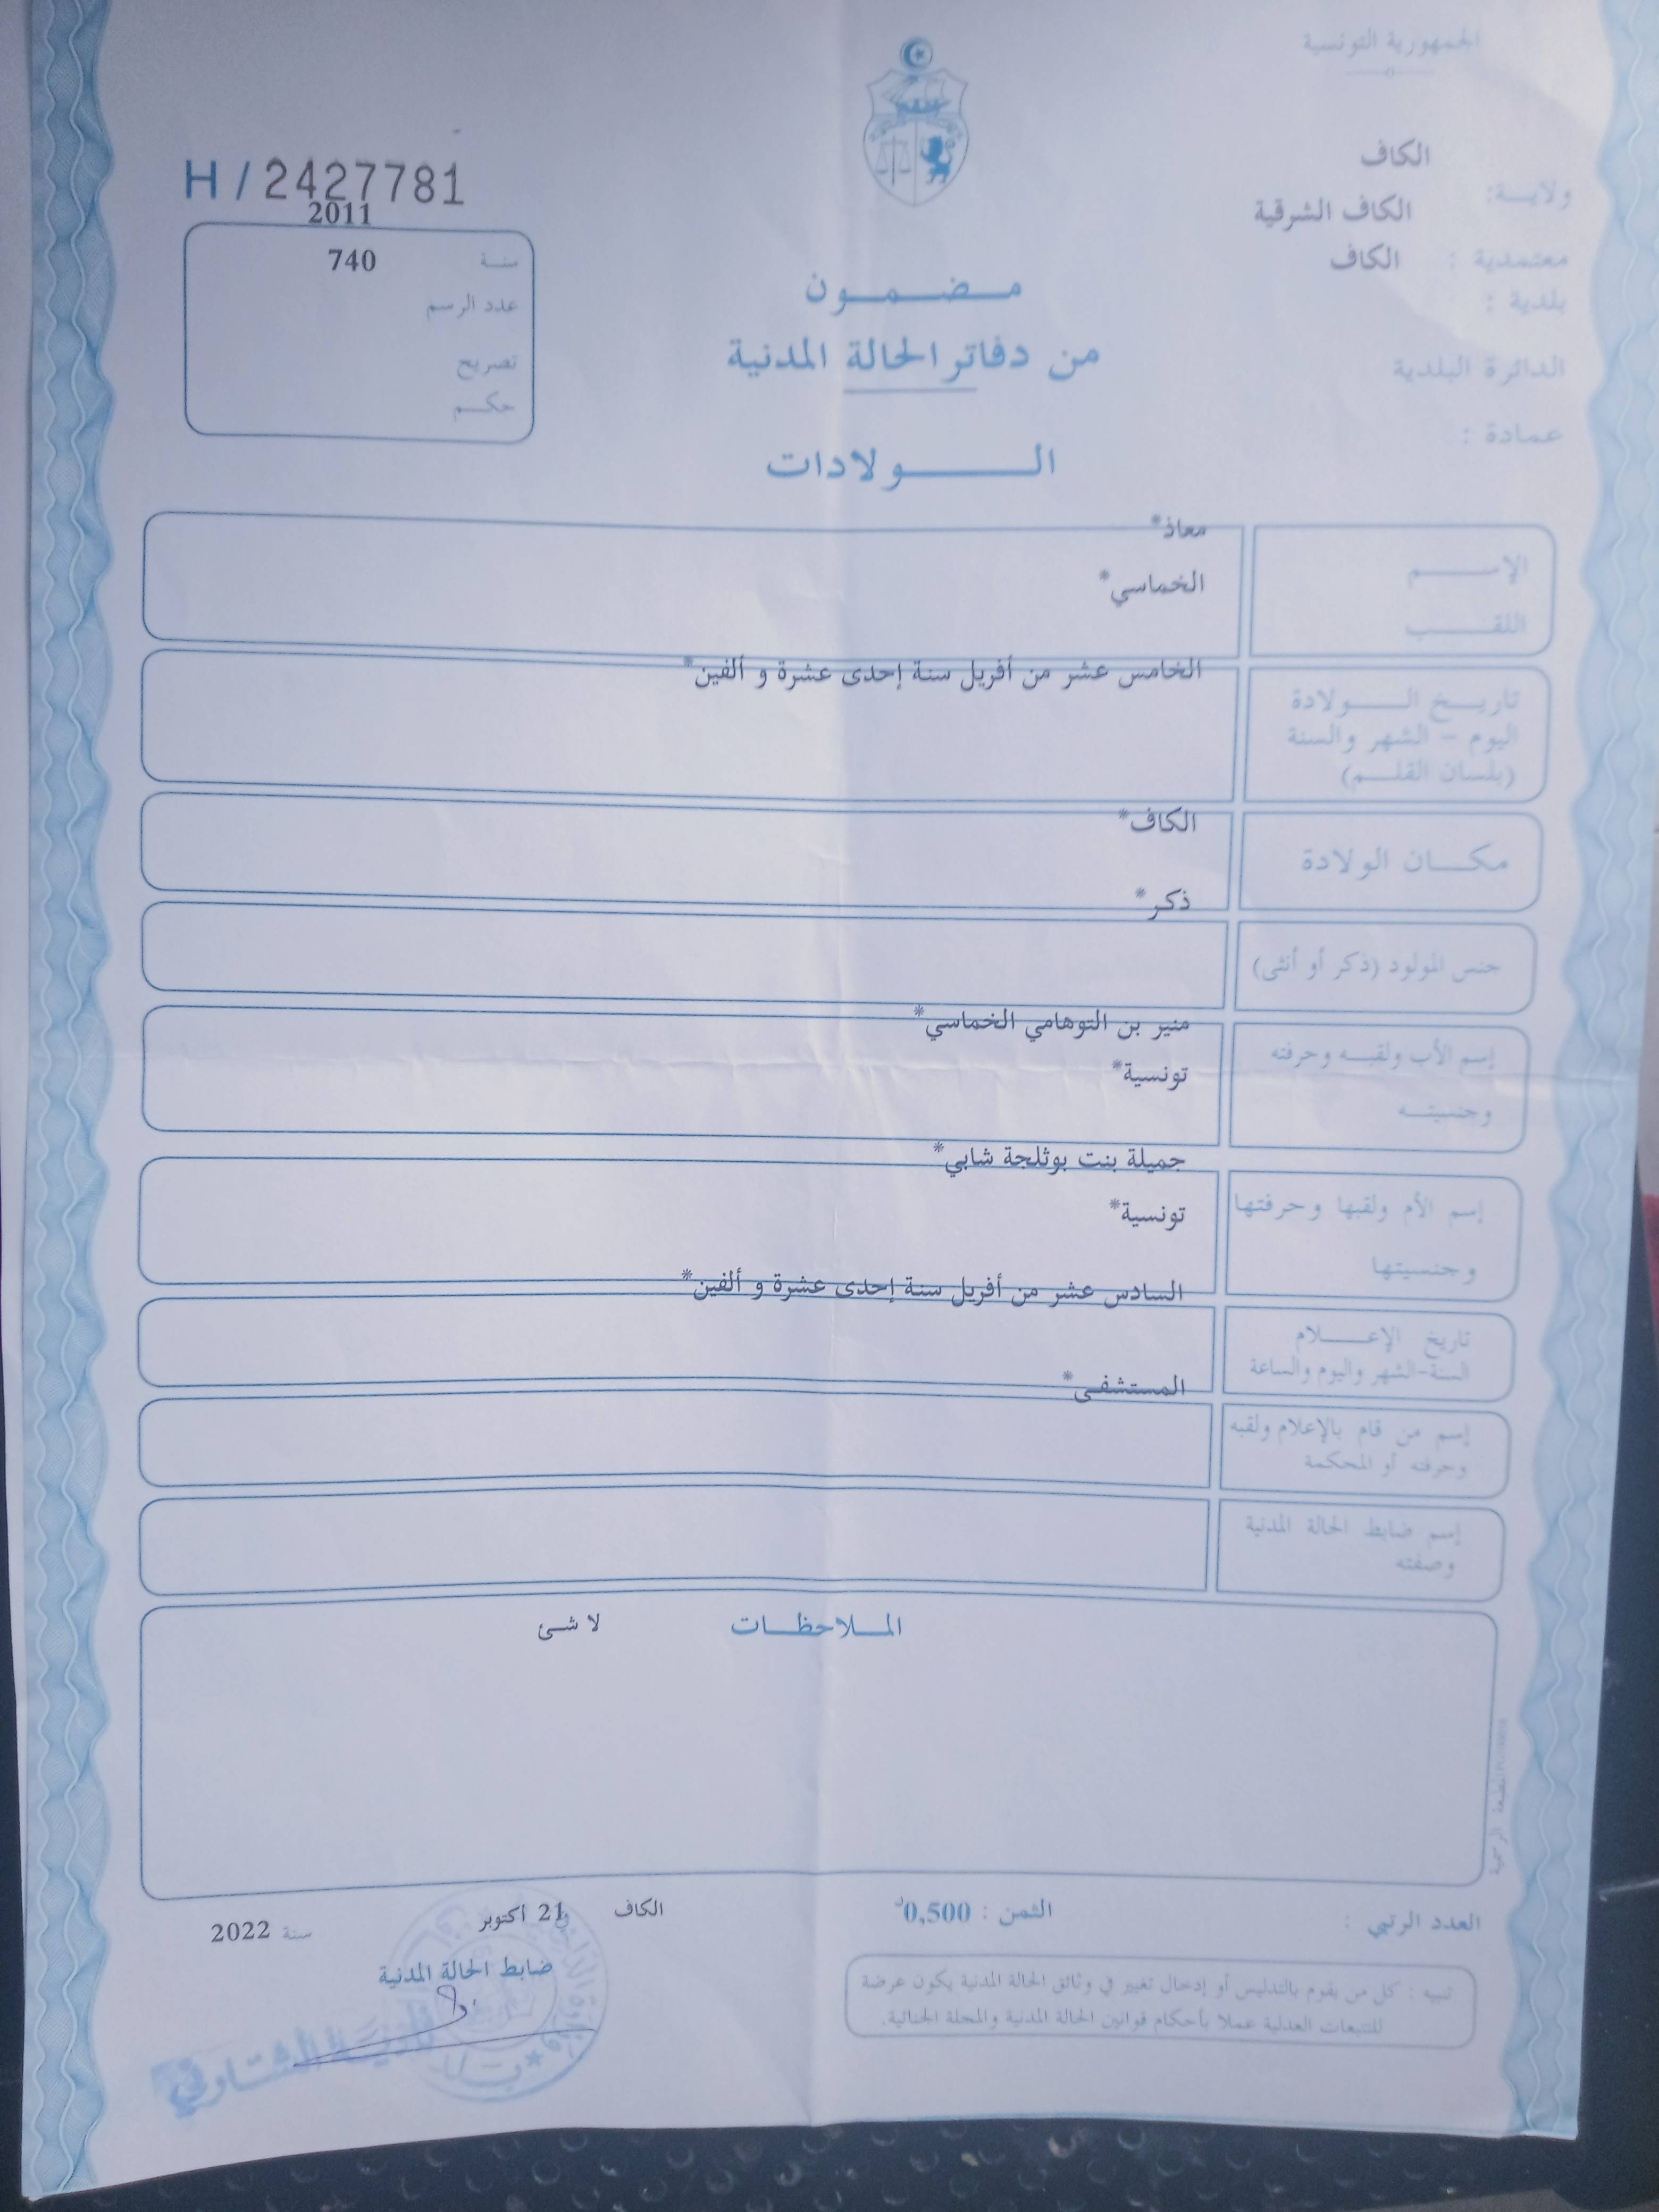 الجمهورية التونسية
ولايـــة: الكاف
معتمدية : الكاف الشرقية
بلدية : الكاف
الدائرة البلدية
عمادة :
H / 2427781
2011
سنـة 740
عدد الرسم
تصريح
حكـــم
مـــضـــمـــون
من دفاتر الحالة المدنية
الـــــولادات
الإســـــم معاذ*
اللقـــــب الخماسي*
تاريـــخ الـــــولادة الخامس عشر من أفريل سنة إحدى عشرة و ألفين*
اليوم - الشهر والسنة
(بلسان القلـــم)
مكـــان الولادة الكاف*
جنس المولود (ذكر أو أنثى) ذكر*
إسم الأب ولقبـــه وحرفته منير بن التوهامي الخماسي*
وجنسيتـــه تونسية*
إسم الأم ولقبها وحرفتها جميلة بنت بوثلجة شابي*
وجنسيتها تونسية*
تاريخ الإعـــــلام السادس عشر من أفريل سنة إحدى عشرة و ألفين*
السنة-الشهر واليوم والساعة
إسم من قام بالإعلام ولقبه المستشفى*
وحرفته أو المحكمة
إسم ضابط الحالة المدنية
وصفته
المـــلاحظـــات لا شئ
المطبعة الرسمية
العدد الرتبي :
الثمن : 0,500د
الكاف في 21 أكتوبر سنة 2022
ضابط الحالة المدنية
تنبيه : كل من يقوم بالتدليس أو إدخال تغيير في وثائق الحالة المدنية يكون عرضة
للتتبعات العدلية عملا بأحكام قوانين الحالة المدنية والمجلة الجنائية.